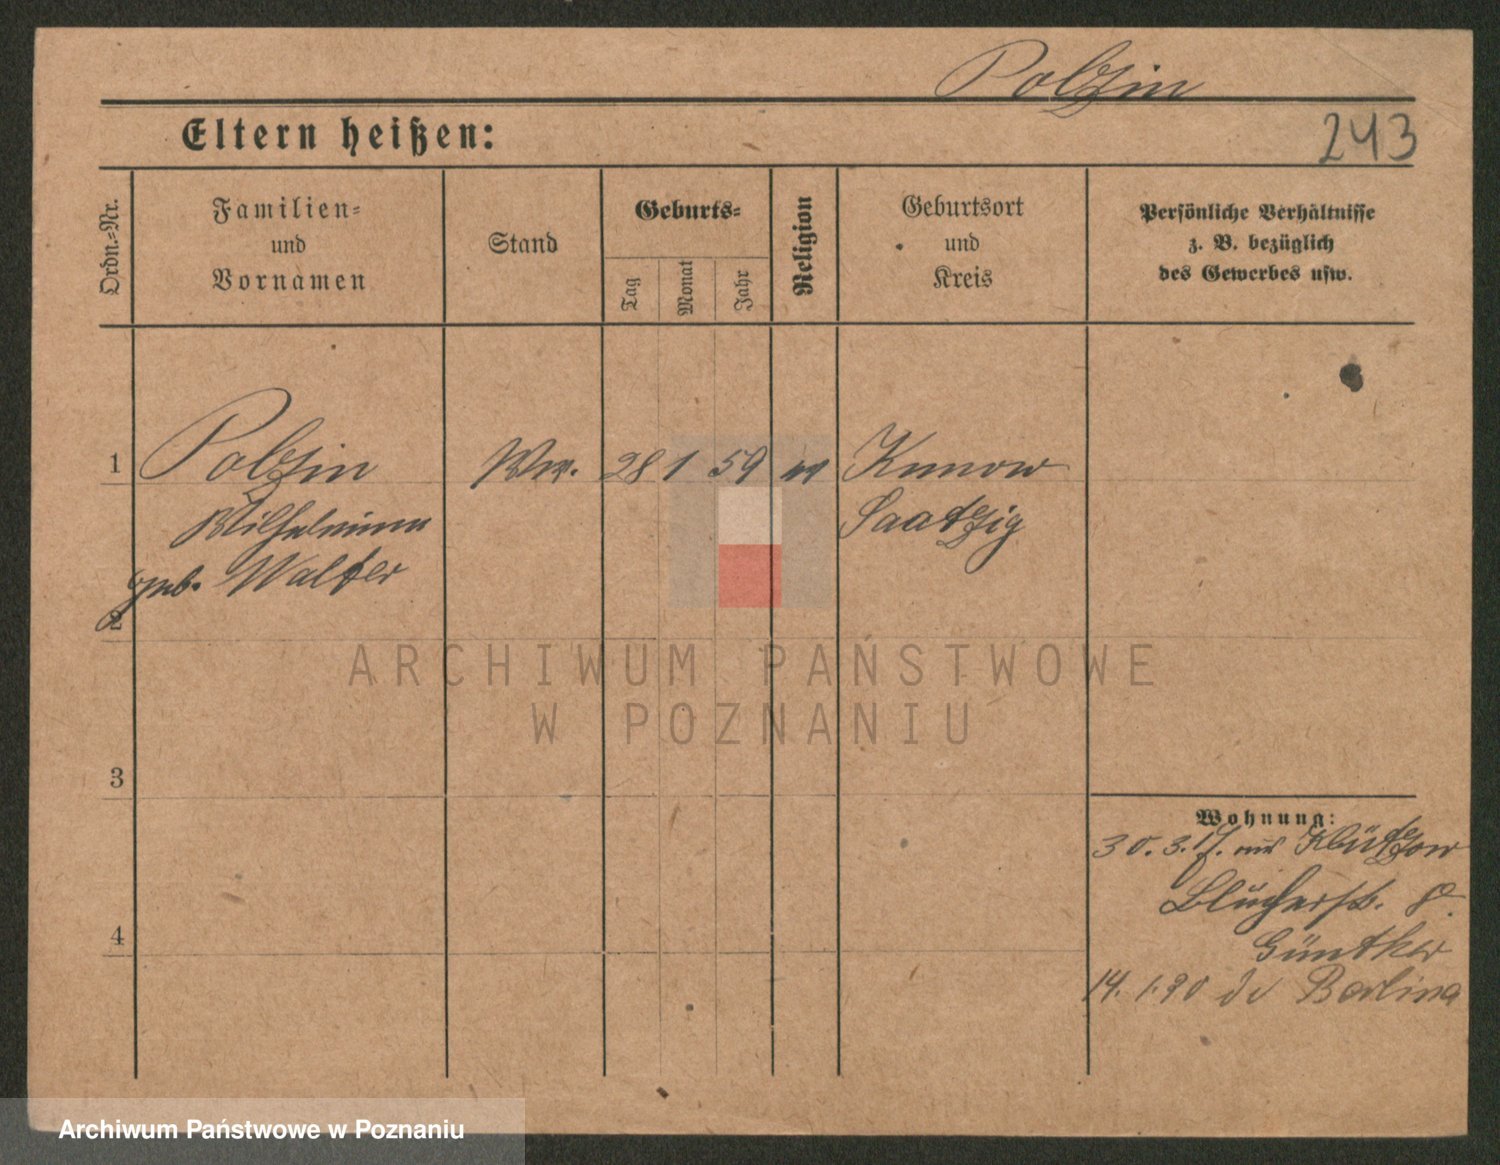 Polzin
243
Eltern heißen:
Ordn.=Nr.
Familien=
und
Vornamen
Stand
Geburts=
Tag
Monat
Jahr
Religion
Geburtsort
und
Kreis
Persönliche Verhältnisse
z. B. bezüglich
des Gewerbes usw.
1 Polzin Ww. 28 1 59 ev Kunow
Wilhelmine Saatzig
geb. Walter
2
3
4
Wohnung:
30.3.17. aus Klützow
Blücherstr. 8.
Günther
14. 1.20 do Berlina
ARCHIWUM PAŃSTWOWE
W POZNANIU
Archiwum Państwowe w Poznaniu